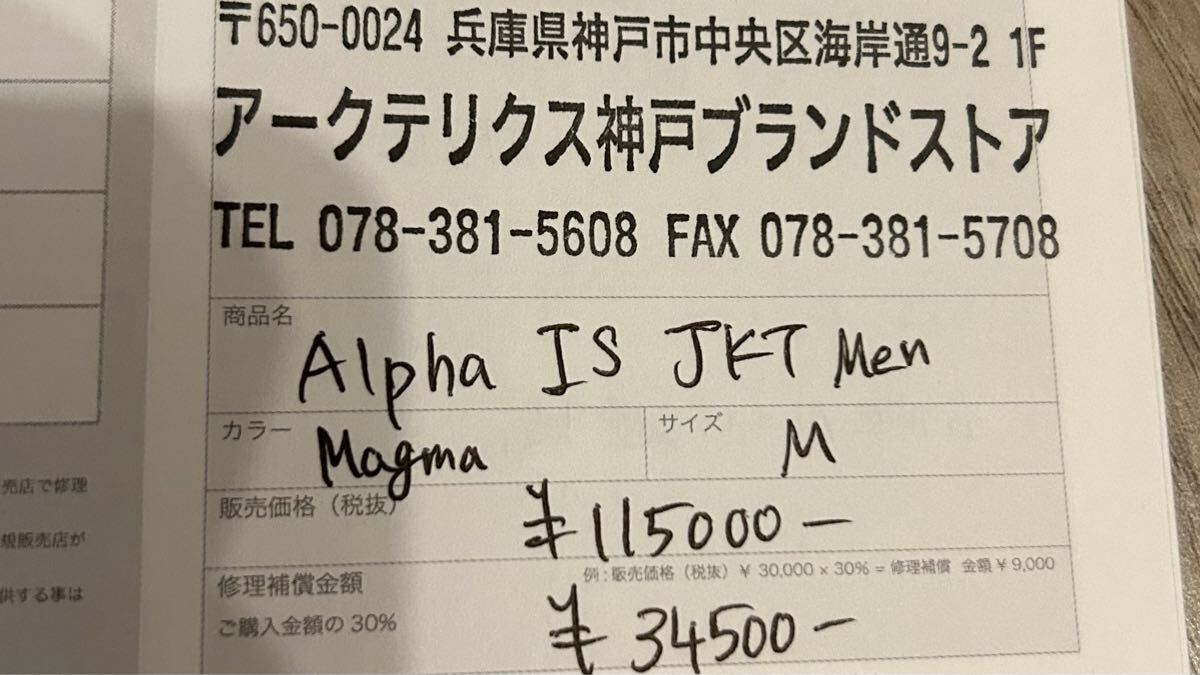 〒650-0024 兵庫県神戸市中央区海岸通9-2 1F
アークテリクス神戸ブランドストア
TEL 078-381-5608 FAX 078-381-5708
商品名
Alpha IS JKT Men
カラー
Magma
サイズ
M
販売価格（税抜）
¥115000-
修理補償金額
例：販売価格（税抜）¥ 30,000 × 30% = 修理補償 金額 ¥ 9,000
ご購入金額の 30%
¥ 34500-
売店で修理
規販売店が
供する事は